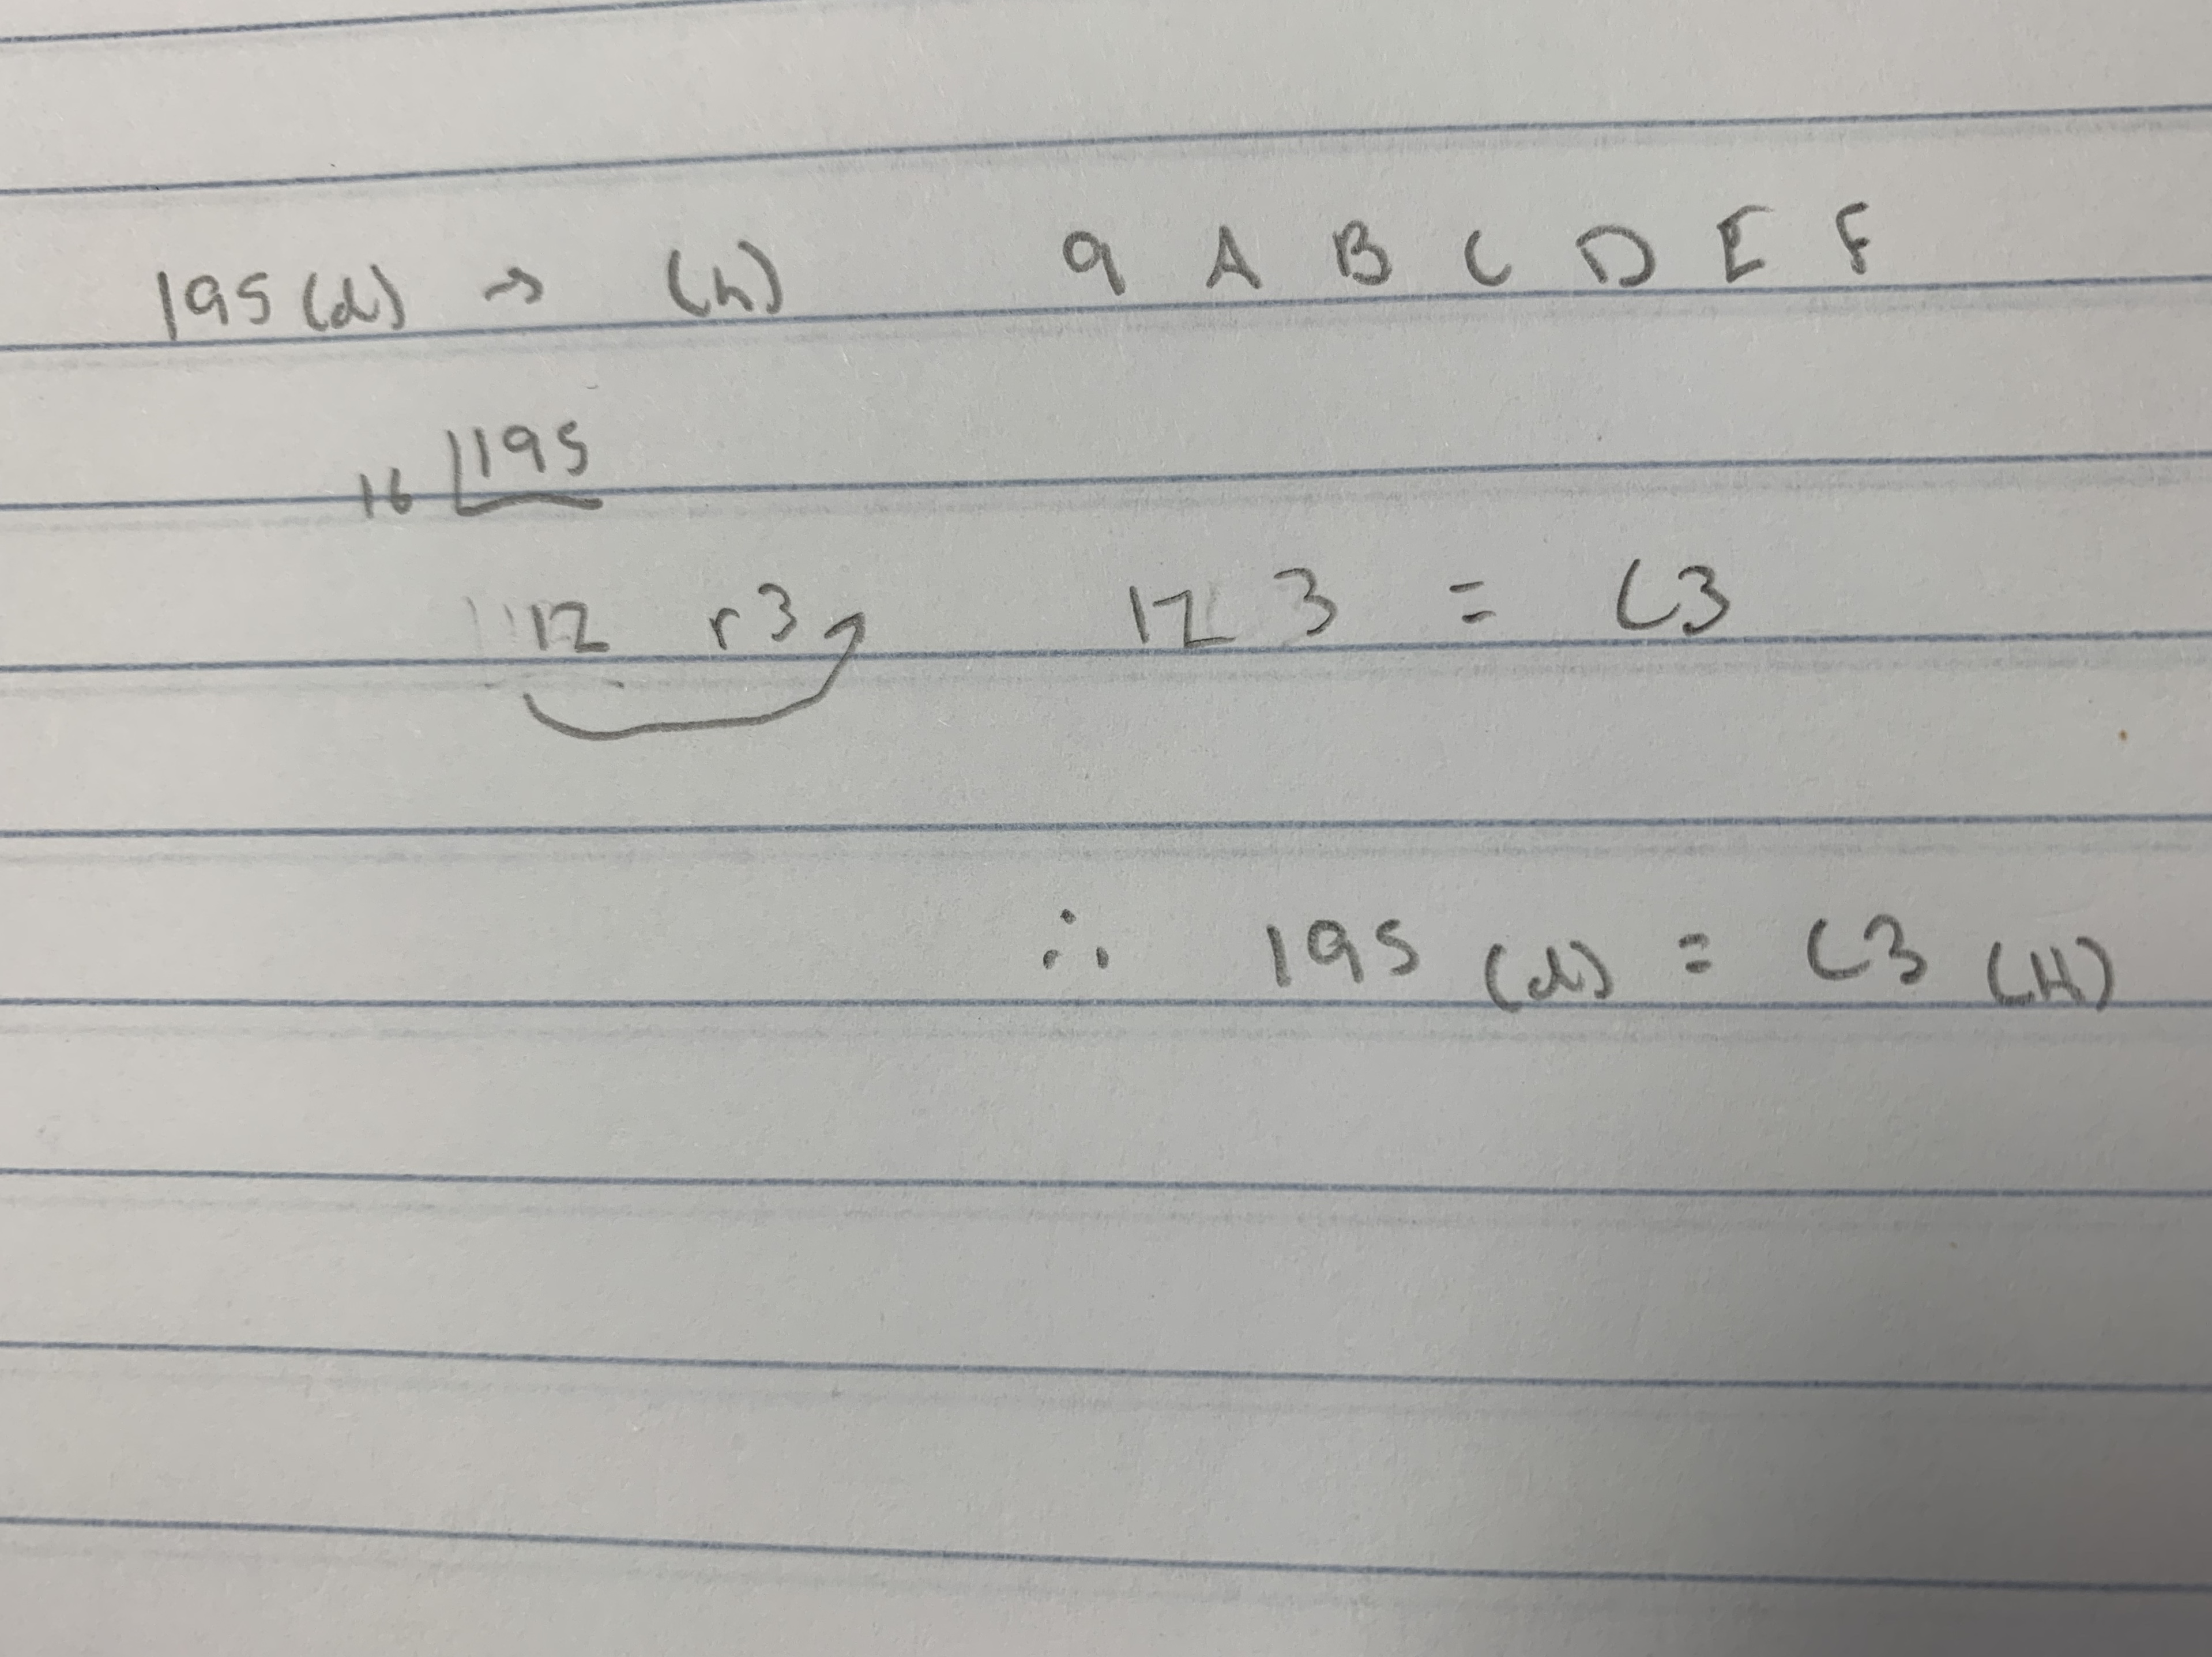 195 (d) → (h) 9 A B C D E F
16 195
12 r3 12 3 = C3
∴ 195 (d) = C3 (H)